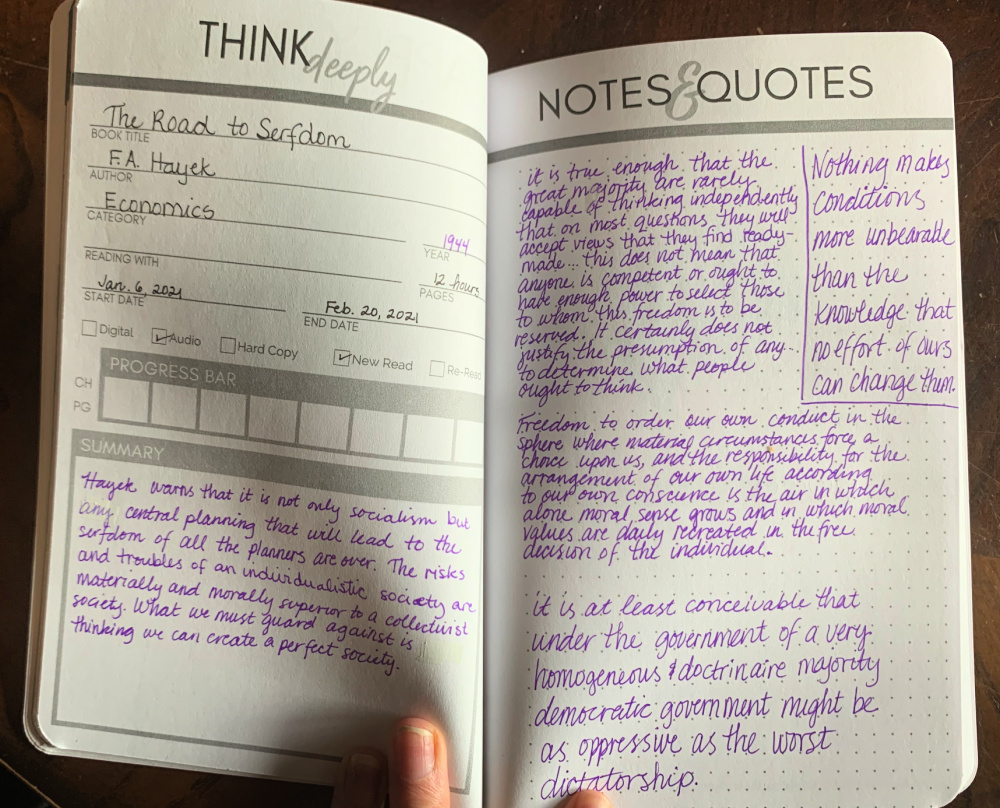 THINK deeply
The Road to Serfdom
BOOK TITLE
F.A. Hayek
AUTHOR
Economics
CATEGORY
1944
YEAR
READING WITH
12 hours
PAGES
Jan. 6, 2021
START DATE
Feb. 20, 2021
END DATE
Digital Audio Hard Copy New Read Re-Read
PROGRESS BAR
CH
PG
SUMMARY
Hayek warns that it is not only socialism but
any central planning that will lead to the
serfdom of all the planners are over. The risks
and troubles of an individualistic society are
materially and morally superior to a collectivist
society. What we must guard against is
thinking we can create a perfect society.
NOTES & QUOTES
it is true enough that the
great majority are rarely
capable of thinking independently
that on most questions they will
accept views that they find ready-
made... this does not mean that
anyone is competent or ought to
have enough power to select those
to whom this freedom is to be
reserved. It certainly does not
justify the presumption of any...
to determine what people
ought to think.
Nothing makes
conditions
more unbearable
than the
knowledge that
no effort of ours
can change them.
Freedom to order our own conduct in the
sphere where material circumstances force a
choice upon us, and the responsibility for the
arrangement of our own life according
to our own conscience is the air in which
alone moral sense grows and in which moral
values are daily recreated in the free
decision of the individual.
it is at least conceivable that
under the government of a very
homogeneous & doctrinaire majority
democratic government might be
as oppressive as the worst
dictatorship.